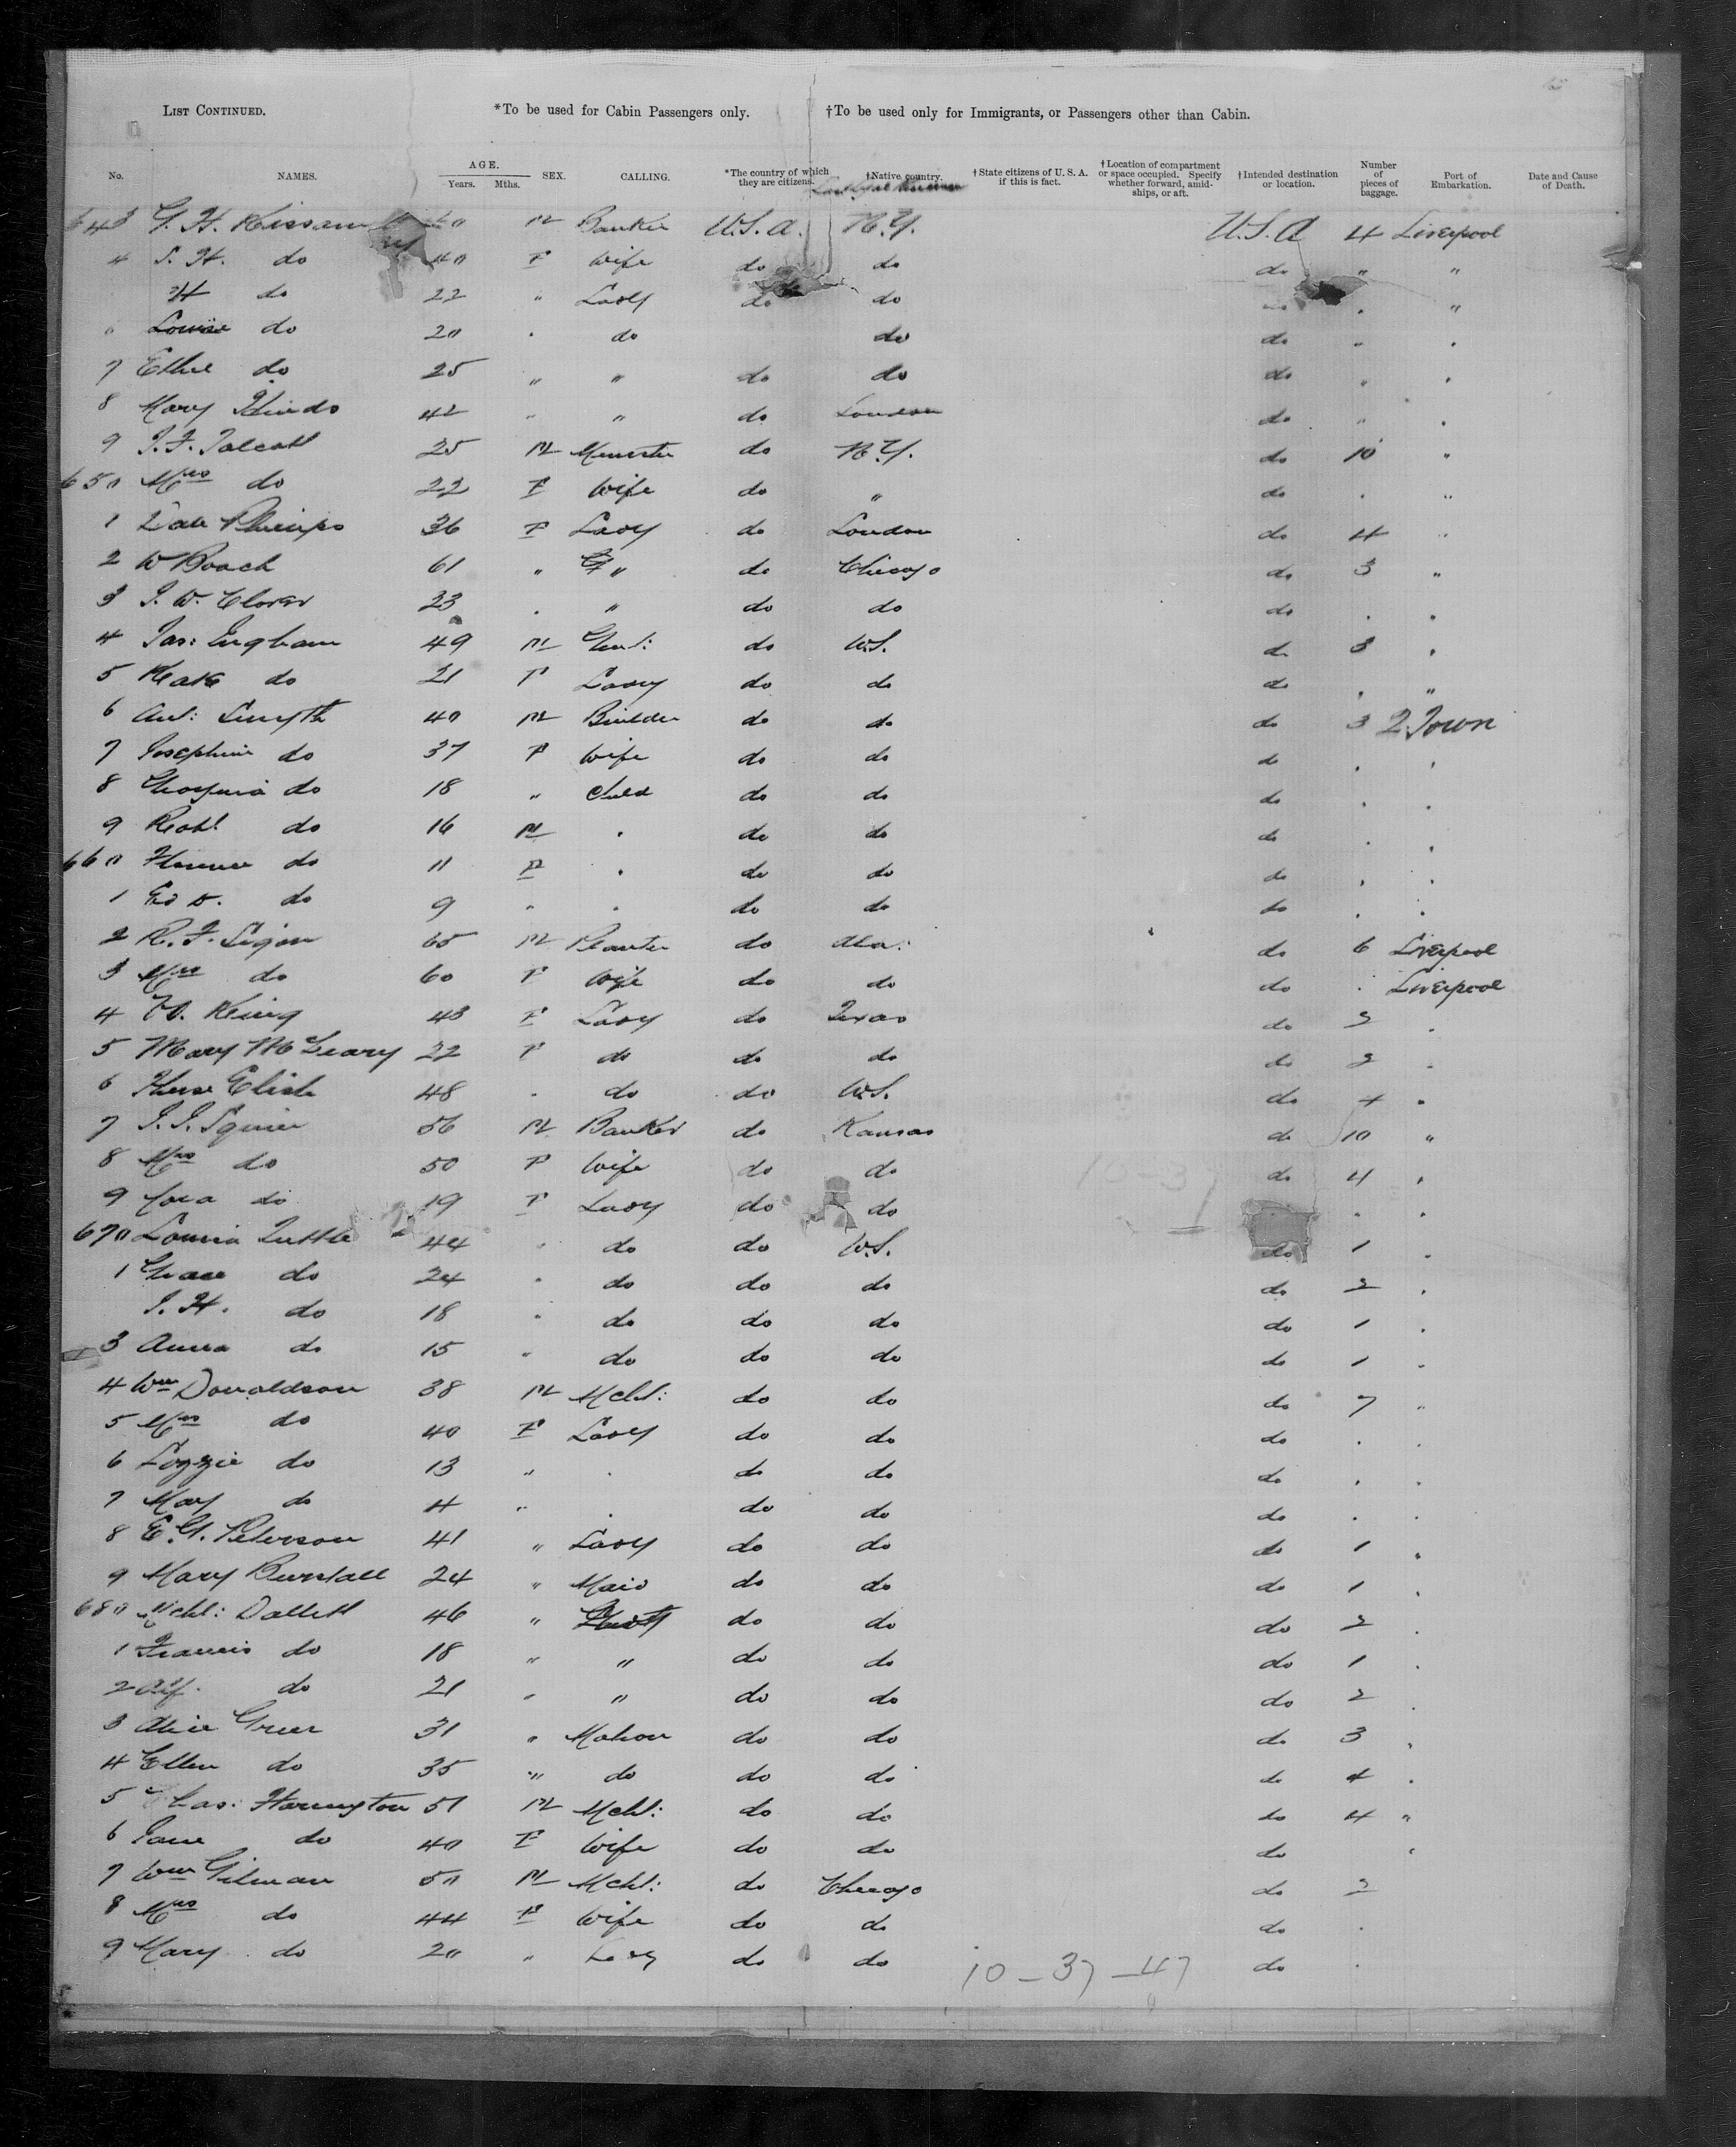 LIST CONTINUED. *To be used for Cabin Passengers only. †To be used only for Immigrants, or Passengers other than Cabin.
No. NAMES. AGE. Years. Mths. SEX. CALLING. *The country of which they are citizens. †Native country. †State citizens of U. S. A. if this is fact. †Location of compartment or space occupied. Specify whether forward, amidships, or aft. †Intended destination or location. Number of pieces of baggage. Port of Embarkation. Date and Cause of Death.
643 G. H. Kissam M Banker U.S.A. N.Y. U.S.A 4 Liverpool
4 S. H. do 40 F Wife do do do " "
H do 22 " Lady do do "
Louise do 20 . do do do " .
7 Ethel do 25 " " do do do " .
8 Mary Hinds 42 " " do London do " .
9 J. F. Talcott 25 M Minister do N.Y. do 10 "
650 Mrs do 22 F Wife do " do . "
1 Phillips 36 F Lady do London do 4 "
2 W Boach 61 " " do Chicago do 3 "
3 J. W. Clover 23 . " do do do . .
4 Jas: Ingham 49 M Gent: do U.S. do 3 .
5 Kate do 21 F Lady do do do . "
6 Ant: Smyth 40 M Builder do do do 3 Q. Town
7 Josephine do 37 F Wife do do do . .
8 do 18 " Child do do do . .
9 Robt do 16 M . do do do . .
660 Florence do 11 F . do do do . .
1 do 9 . . do do do . .
2 R. F. Ligon 65 M Planter do Ala: do 6 Liverpool
3 Mrs do 60 F Wife do do do . Liverpool
4 W. King 43 F Lady do Texas do 2 .
5 Mary McLeary 22 F do do do do 2 .
6 48 . do do U.S. do 4 .
7 J. J. Squier 56 M Banker do Kansas do 10 "
8 Mrs do 50 F Wife do do do 4 .
9 Cora do 19 F Lady do do . .
670 Louisa Tuttle 44 " do do U.S. do 1 .
1 Grace do 24 " do do do do 2 .
J. H. do 18 " do do do do 1 .
3 Anna do 15 " do do do do 1 .
4 Wm Donaldson 38 M Mcht: do do do 7 "
5 Mrs do 40 F Lady do do do . .
6 Lizzie do 13 " . do do do . .
7 May do 4 " . do do do . .
8 E. G. Peterson 41 " Lady do do do 1 .
9 Mary Burstall 24 " Maid do do do 1 .
680 Dallett 46 " do do do 2 .
1 Francis do 18 " " do do do 1 .
2 Alf. do 21 " " do do do 2 .
3 Alice Greer 31 " do do do 3 .
4 Ellen do 35 " do do do do 4 .
5 Chas: Harrington 51 M Mcht: do do do 4 "
6 Jane do 40 F Wife do do do .
7 Wm Gilman 50 M Mcht: do Chicago do 2
8 Mrs do 44 F Wife do do do .
9 Mary do 20 " Lady do do 10-37-47 do .